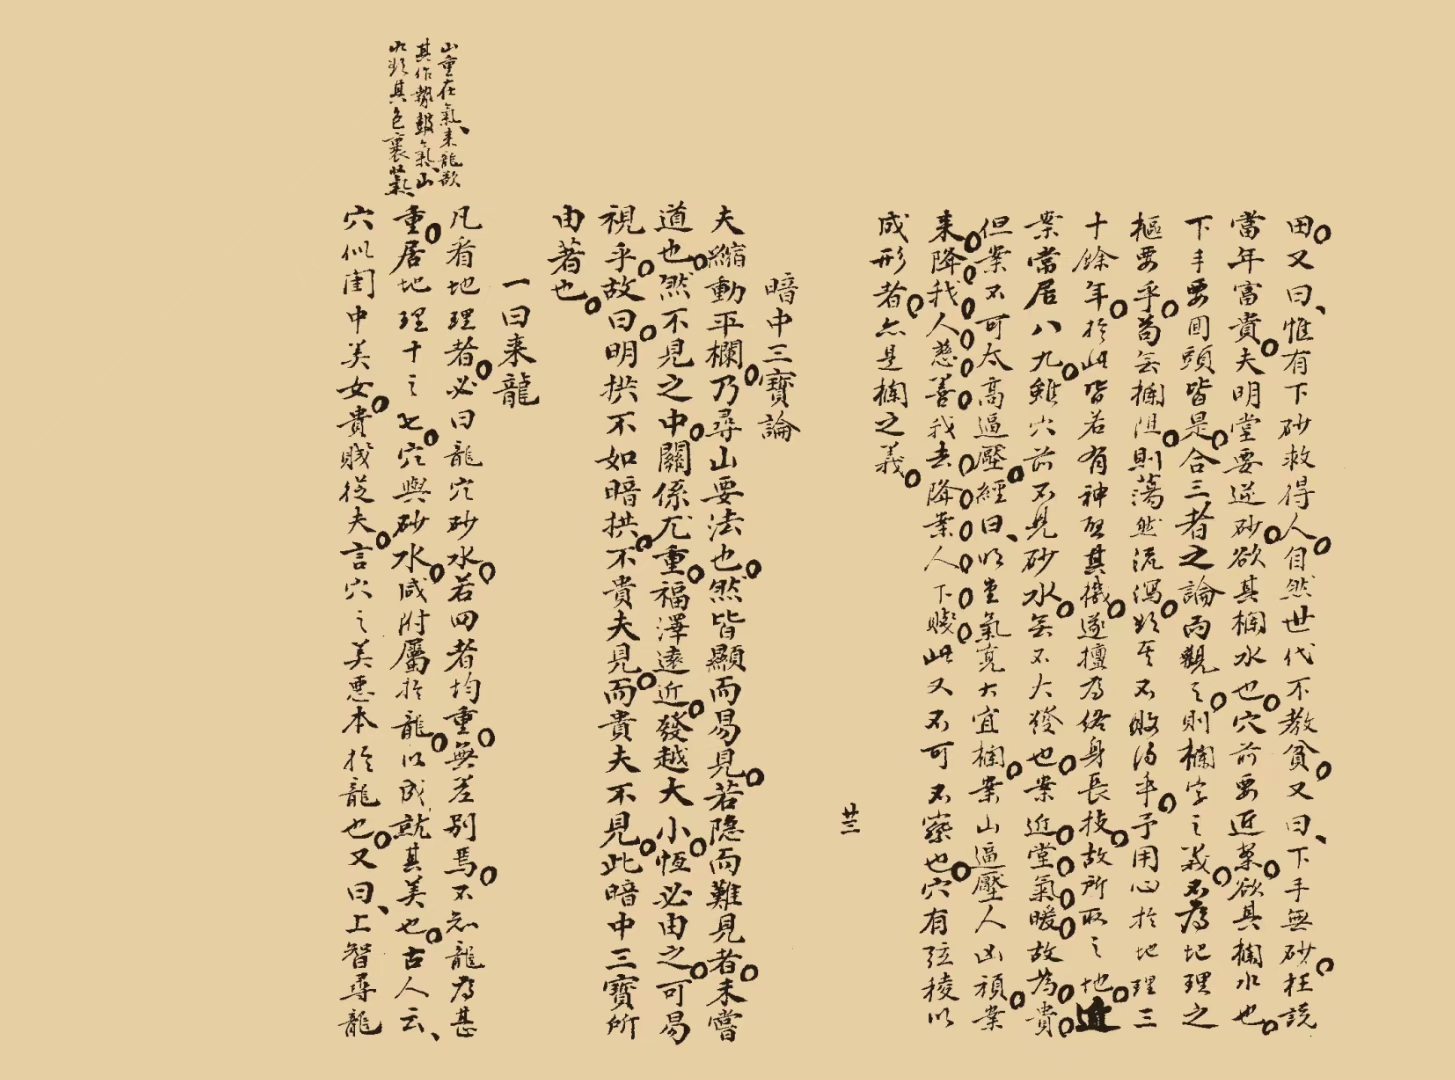 田又曰惟有下砂救得人自然世代不教貧又曰下手無砂枉說
當年富貴夫明堂要逆砂欲其攔水也穴前要近案欲其攔水也
下手要回頭皆是合三者之論而觀之則攔字之義不為地理之
樞要乎苟無攔阻則蕩然流瀉財其不敗得乎予用心於地理三
十餘年於此皆若有神啓其機遂擅為修身長技故所取之地近
案當居八九雖穴前不見砂水無不大發也案近堂氣暖故為貴
但案不可太高逼壓經曰明堂氣寬大宜攔案山逼壓人凶頑案
來降我人慈善我去降案人下賤此又不可不察也穴有弦稜以
成形者亦是攔之義
廿三
暗中三寶論
夫縮動平欄乃尋山要法也然皆顯而易見若隱而難見者未嘗
道也然不見之中關係尤重福澤遠近發越大小恆必由之可易
視乎故曰明拱不如暗拱不貴夫見而貴夫不見此暗中三寶所
由著也
一曰来龍
凡看地理者必曰龍穴砂水若四者均重無差別焉不知龍為甚
重居地理十之七穴與砂水咸附屬於龍以成就其美也古人云
穴似閨中美女貴賤從夫言穴之美惡本於龍也又曰上智尋龍
山重在氣来龍欲
其作勢鼓氣山
其色裏